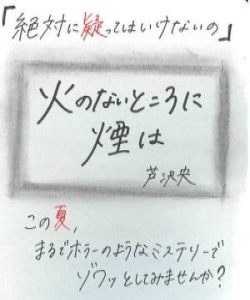 「絶対に疑ってはいけないの」
火のないところに
煙は
芦沢央
この夏,
まるでホラーのようなミステリーで
ゾワッとしてみませんか?